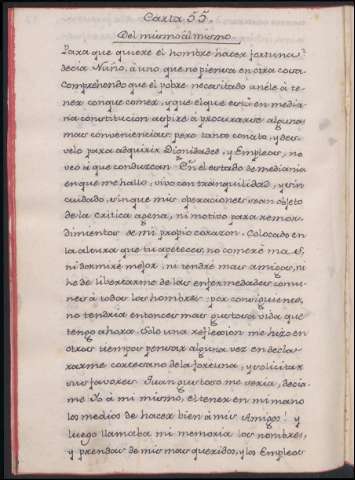 Carta 55.
Del mismo al mismo
Para que quiere el hombre hacer fortuna?
decía Nuño, à uno que no piensa en otra cosa.
Comprehendo que el pobre necesitado anèle à te-
ner conque comer, y que el que està en media-
na constitucion aspire à procurarse algunas
mas conveniencias; pero tanto conato, y des-
velo para adquirir Dignidades, y Empleos, no
veo à que conduzcan. En el estado de medianìa
en que me hallo, vivo con tranquilidad, y sin
cuidado, sin que mis operaciones sean objeto
de la critica agena, ni motivo para remor-
dimientos de mi propio corazon. Colocado en
la altura que tu apeteces, no comerè mas,
ni dormirè mejor, ni tendrè mas amigos, ni
he de libertarme de las enfermedades comu-
nes à todos los hombres: por consiguiente,
no tendria entonces mas gustosa vida que
tengo ahora. Sólo una reflexion me hizo en
otros tiempos pensar alguna vez en decla-
rarme cortesano de la fortuna, y solicitar
sus favores. Quan gustoso me seria, decia-
me Yo à mi mismo, el tener en mi mano
los medios de hacer bien à mis Amigos! y
luego llamaba mi memoria los nombres,
y prendas de mis mas queridos, y los Empleos